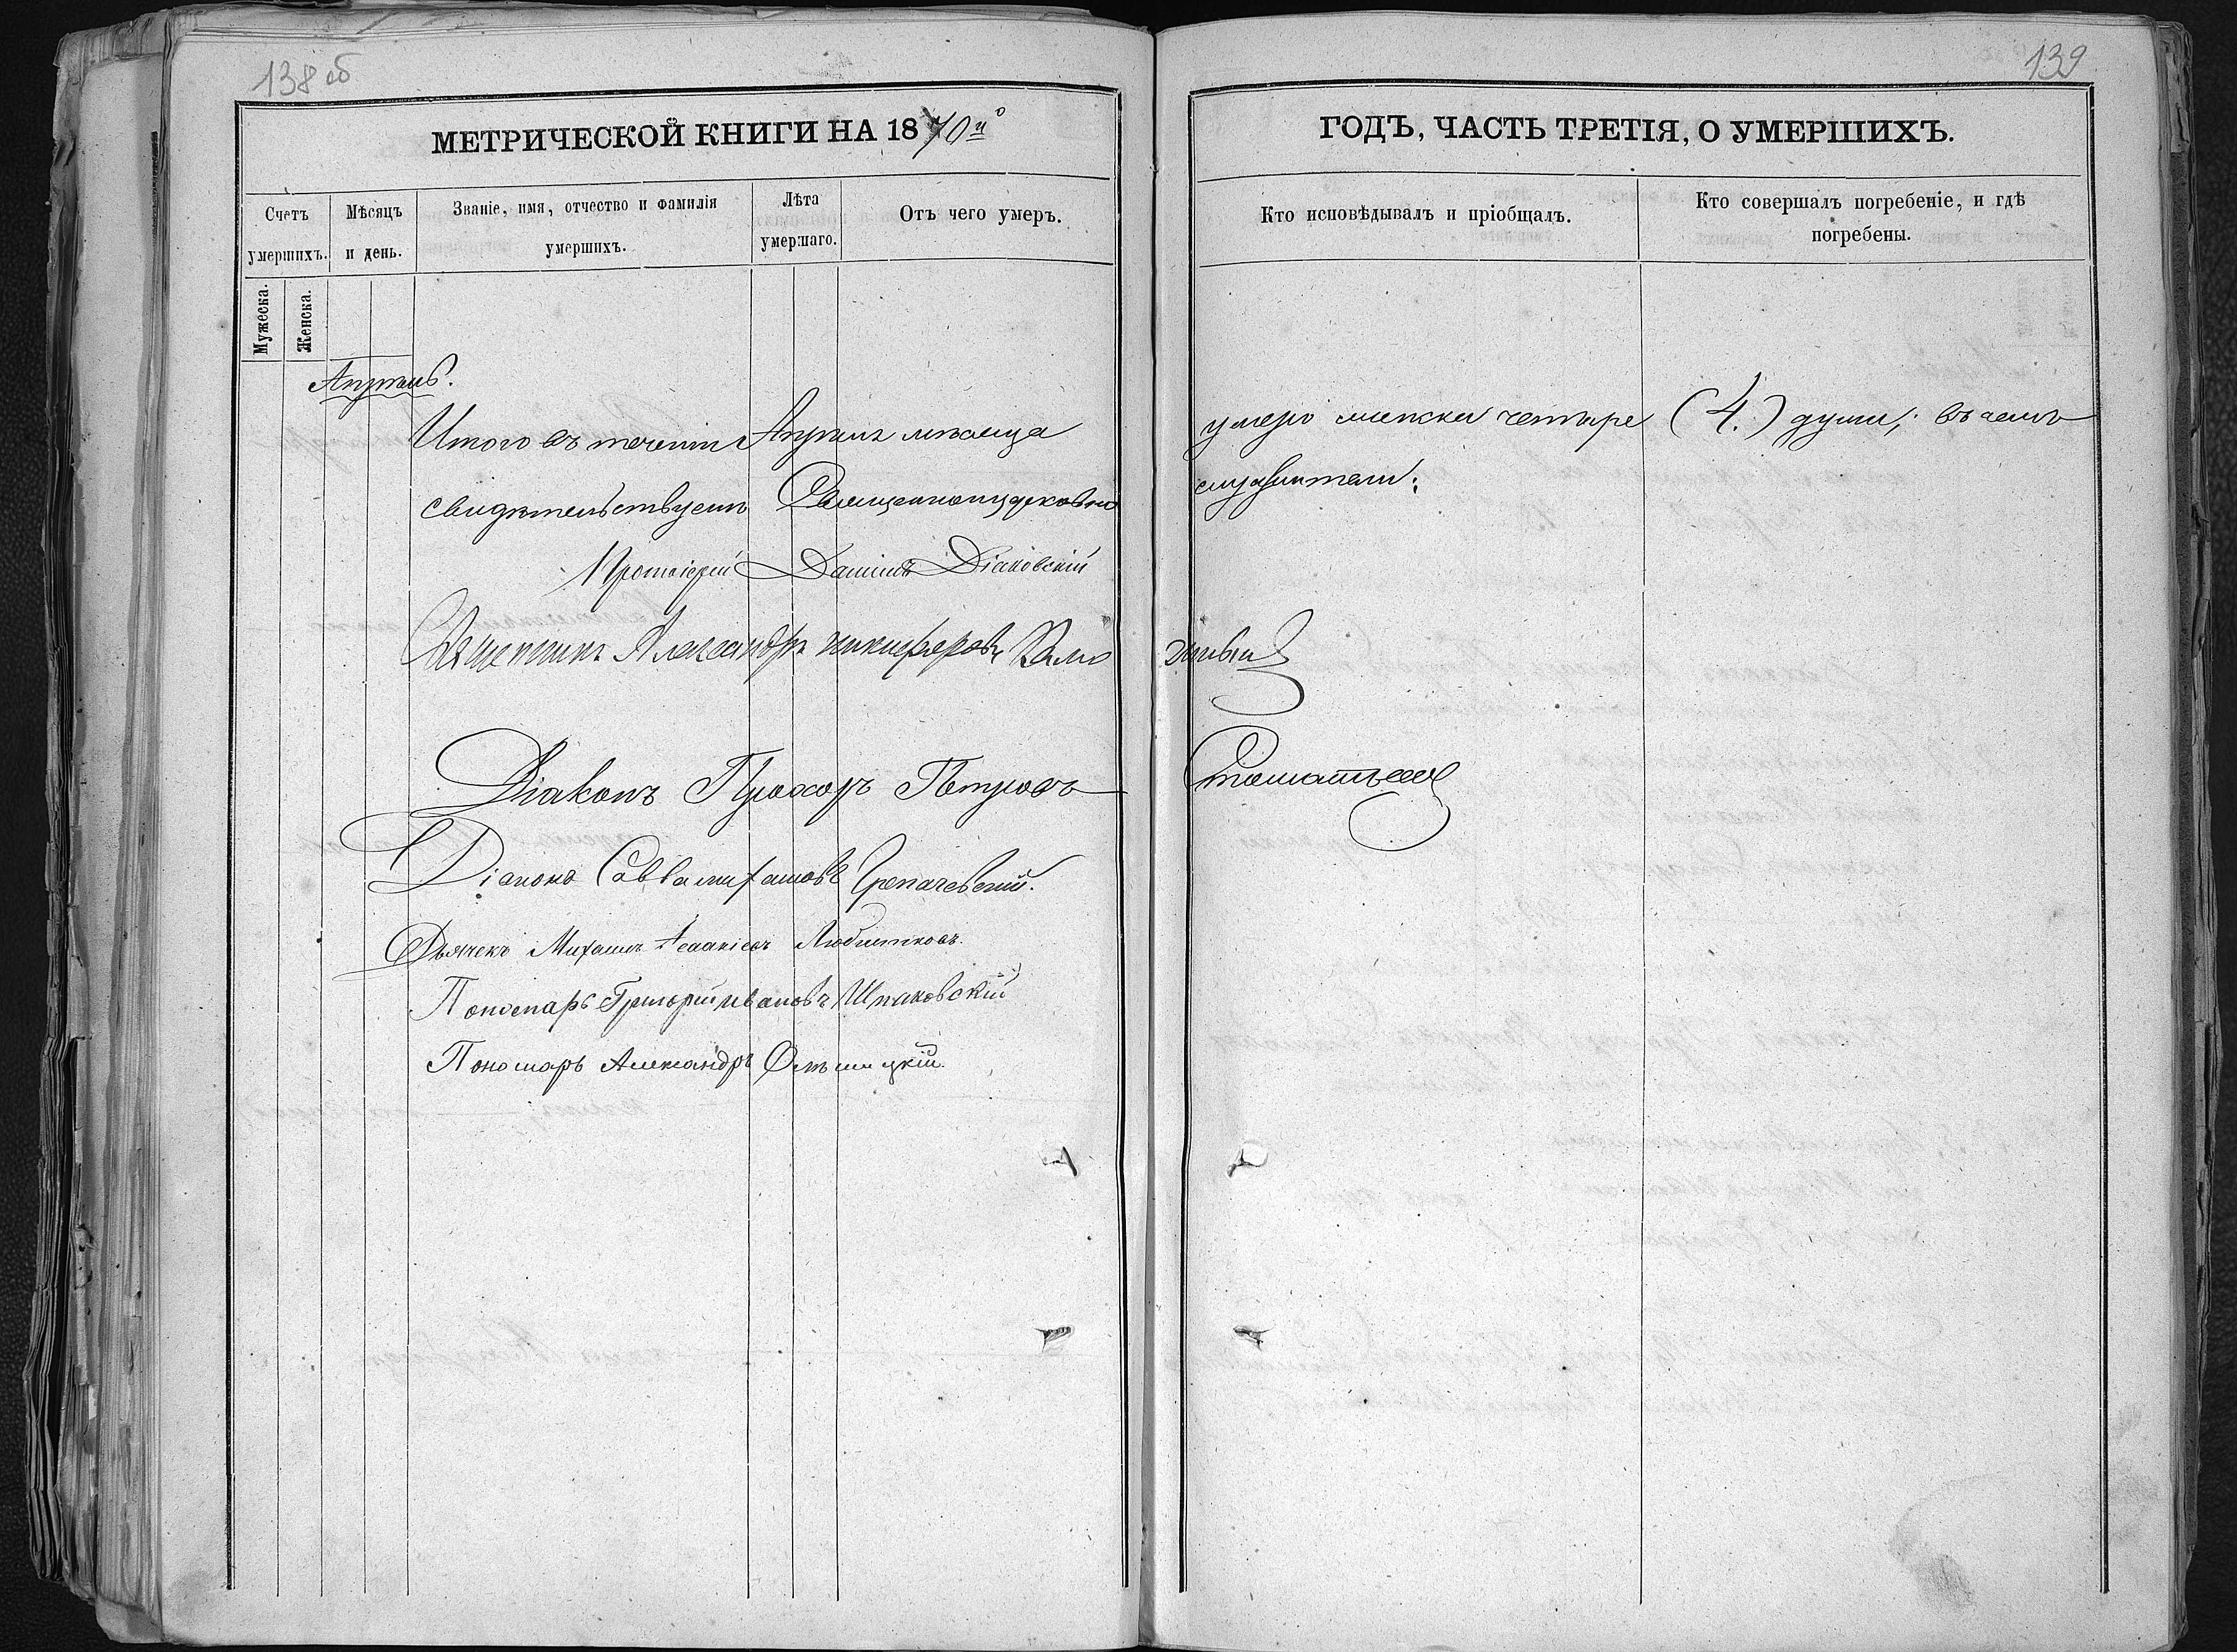 138 об
МЕТРИЧЕСКОЙ КНИГИ НА 1870й
Счетъ умершихъ.
Мѣсяцъ и день.
Званіе, имя, отчество и фамилія умершихъ.
Лѣта умершаго.
Отъ чего умеръ.
Мужеска.
Женска.
Апрѣль.
Итого въ теченіи Апрѣля мѣсяца
свидѣтельствуемъ Священноцерковно
Протоіерей Даніилъ Діаковскій
Священникъ Александръ Никифоровъ
Діаконъ Прохоръ Петровъ
Діаконъ Савва Михайловъ
Дьячекъ Михаилъ Любитковъ.
Пономарь Григорій Ивановъ Шпаковскій
Пономарь Александръ
139
ГОДЪ, ЧАСТЬ ТРЕТІЯ, О УМЕРШИХЪ.
Кто исповѣдывалъ и пріобщалъ.
Кто совершалъ погребеніе, и гдѣ погребены.
умерло четыре (4.) души; въ чемъ
служители: